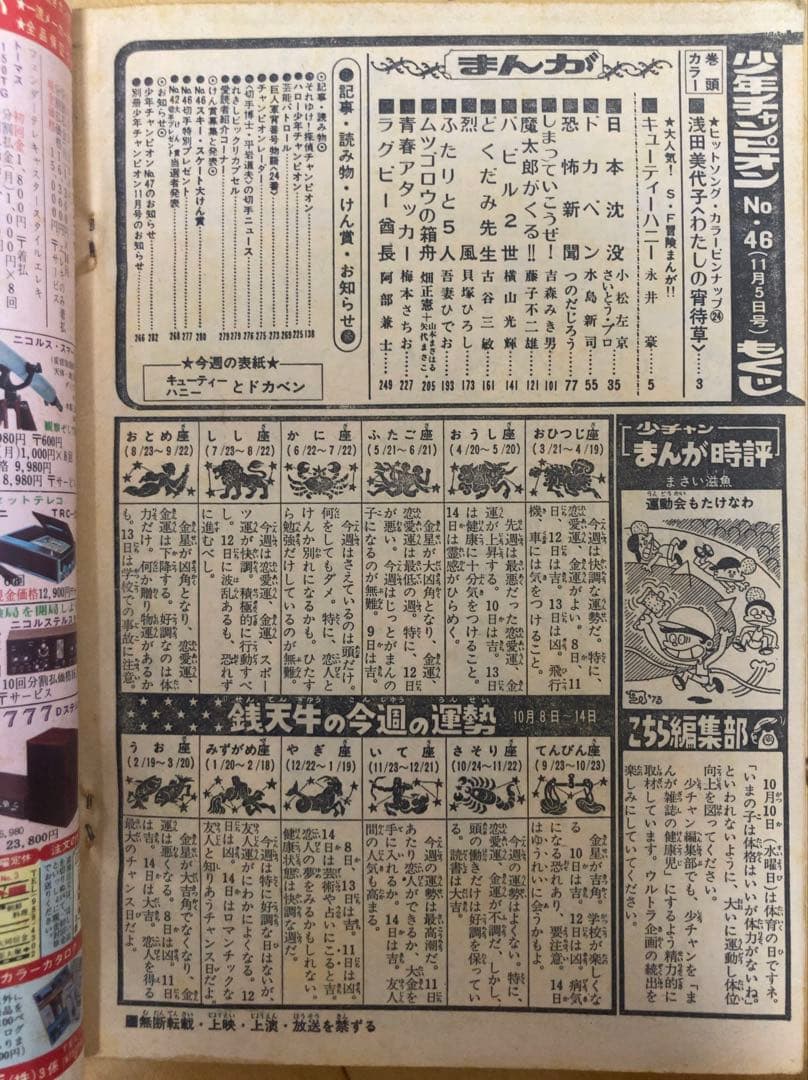 少年チャンピオン No.46(11月5日号) もくじ
巻頭カラー
★ヒットソング・カラーピンナップ㉔
浅田美代子〈わたしの宵待草〉 3
★大人気! S・F冒険まんが!!
■キューティーハニー 永井豪 5
まんが
■日本沈没 小松左京 さいとう・プロ 35
■ドカベン 水島新司 55
■恐怖新聞 つのだじろう 77
■しまっていこうぜ! 吉森みき男 101
■魔太郎がくる!! 藤子不二雄 121
■バビル2世 横山光輝 141
■どくだみ先生 古谷三敏 161
■烈風 貝塚ひろし 173
■ふたりと5人 吾妻ひでお 193
■ムツゴロウの箱舟 畑正憲+山本まさはる・矢代まさこ 205
■青春アタッカー 梅本さちお 227
■ラグビー酋長 阿部兼士 249
●記事・読み物・けん賞・お知らせ
◎記事・読み物◎
★それゆけ!探偵チャンピオン 138
★ハロー少年チャンピオン 225
★芸能パトロール 269
★巨人軍背番号物語〈24番〉 273
★チャンピオンレーダー 275
★〈切手博士・平岩道夫〉の切手ニュース 276
★れきしビックリカプセル 279
★愛読者紹介コーナー 279
◎けん賞募集と発表◎
★No.46スキー・スケート大けん賞 280
★No.46切手特別プレゼント 277
★No.42大けん賞切手プレゼント当選者発表 268
◎お知らせ◎
★少年チャンピオンNo.47のお知らせ 282
★別冊少年チャンピオン11月号のお知らせ 266
★今週の表紙★
キューティーハニーとドカベン
少チャン
まんが時評
まさい滋魚
運動会もたけなわ
'73
こちら編集部
10月10日(水曜日)は体育の日ですネ。
「いまの子は体格はいいが体力がないね。」
といわれないように、大いに運動し体位
向上を図ってください。
少チャン編集部でも、少チャンを「ま
んが雑誌の健康児」にするよう精力的に
取材しています。ウルトラ企画の続出を
楽しみにしていてください。
おひつじ座
(3/21〜4/19)
今週は快調な運勢だ。特に、
恋愛運、金運がよい。8日、11
日、12日は吉。13日は凶。飛行
機、車には気をつけること。
おうし座
(4/20〜5/20)
先週は最悪だった恋愛運、金
運が上昇する。10日は吉。13日
は健康に十分気をつけること。
14日は霊感がひらめく。
ふたご座
(5/21〜6/21)
金星が大凶角となり、金運、
恋愛運は最低の週。特に、12日
が悪い。今週はじっとがまんの
子になるのが無難。9日は吉。
かに座
(6/22〜7/22)
今週はさえているのは頭だけ。
何をしてもダメ。特に、恋人と
けんか別れになるかも。ひたす
ら勉強だけしているのが無難。
しし座
(7/23〜8/22)
今週は恋愛運、金運、スポー
ツ運が快調。積極的に行動すべ
し。12日に波乱あるも、恐れず
に進むべし。
おとめ座
(8/23〜9/22)
金星が凶角となり、恋愛運、
金運は下降する。好調なのは体
力だけ。何か贈り物運があるか
も。13日は学校での事故に注意。
銭天牛の今週の運勢 10月8日〜14日
てんびん座
(9/23〜10/23)
金星が吉角。学校が楽しくな
る。10日は吉。12日は凶。病気
になる恐れあり、要注意。14日
はゆうれいに会うかもよ。
さそり座
(10/24〜11/22)
今週の運勢はよくない。特に、
恋愛運、金運が不調だ。しかし、
頭の働きだけは好調を保ってい
る。読書は大吉。
いて座
(11/23〜12/21)
今週の運勢は最高潮だ。11日
あたり恋人ができるか、大金を
手に入れるか。14日は吉。友人
間の人気も高まる。
やぎ座
(12/22〜1/19)
8日、13日は吉。11日は凶。
14日は芸術や占いにこると吉。
恋人の夢をみるかもしれない。
健康状態は快調な週だ。
みずがめ座
(1/20〜2/18)
今週は特に好調な日はないが、
友人運がにわかによくなる。12
日は凶。14日はロマンチックな
友人と知りあうチャンス日だよ。
うお座
(2/19〜3/20)
金星が大吉角でなくなり、金
運は悪くなる。8日は凶。11日
は吉。14日は大吉。恋人を得る
最大のチャンス日だよ。
■無断転載・上映・上演・放送を禁ずる
ニコルス・スマ
セットテレコ
TRC-
現金価格12,900円
ニコルステルス
10回分割払価格
777Dステ
23,800円
カラーカタログ